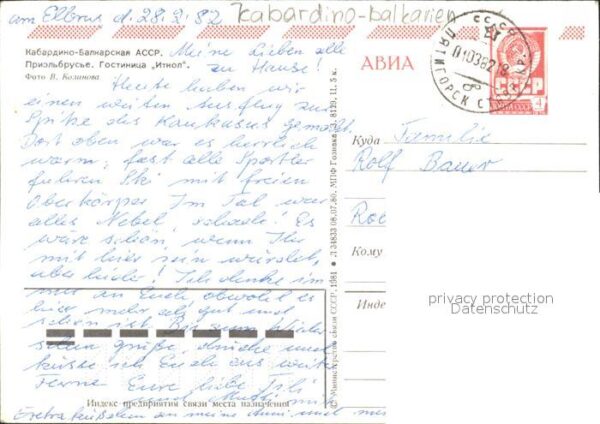 am Elbrus d. 28.2.82 Kabardino-Balkarien
Кабардино-Балкарская АССР.
Приэльбрусье. Гостиница „Иткол".
Фото В. Колинова
Meine Lieben alle
zu Hause!
Heute haben wir
einen weiten Ausflug zur
Spitze des Kaukasus gemacht.
Dort oben war es herrlich
warm, fast alle Sportler
fuhren Ski mit freien
Oberkörper. Im Tal war
alles Nebel, schade! Es
wäre schön, wenn Ihr
mit hier sein würdet,
aber leider! Ich denke im
mer an Euch obwohl es
hier sehr gut und
schön ist. Bis zum
grüße, drücke und
küsse ich Euch aus weiter
Ferne Eure liebe
und Mutti
Индекс предприятия связи места назначения
Extra an meine und
© Министерство связи СССР, 1981 Л 34833 08.07.80. МПФ Гознака. З. 8129. Ц. 5 к.
АВИА
СССР
ПЯТИГОРСК
СССР
ПОЧТА
4
Куда
Familie
Rolf Bauer
Кому
Инде
privacy protection
Datenschutz